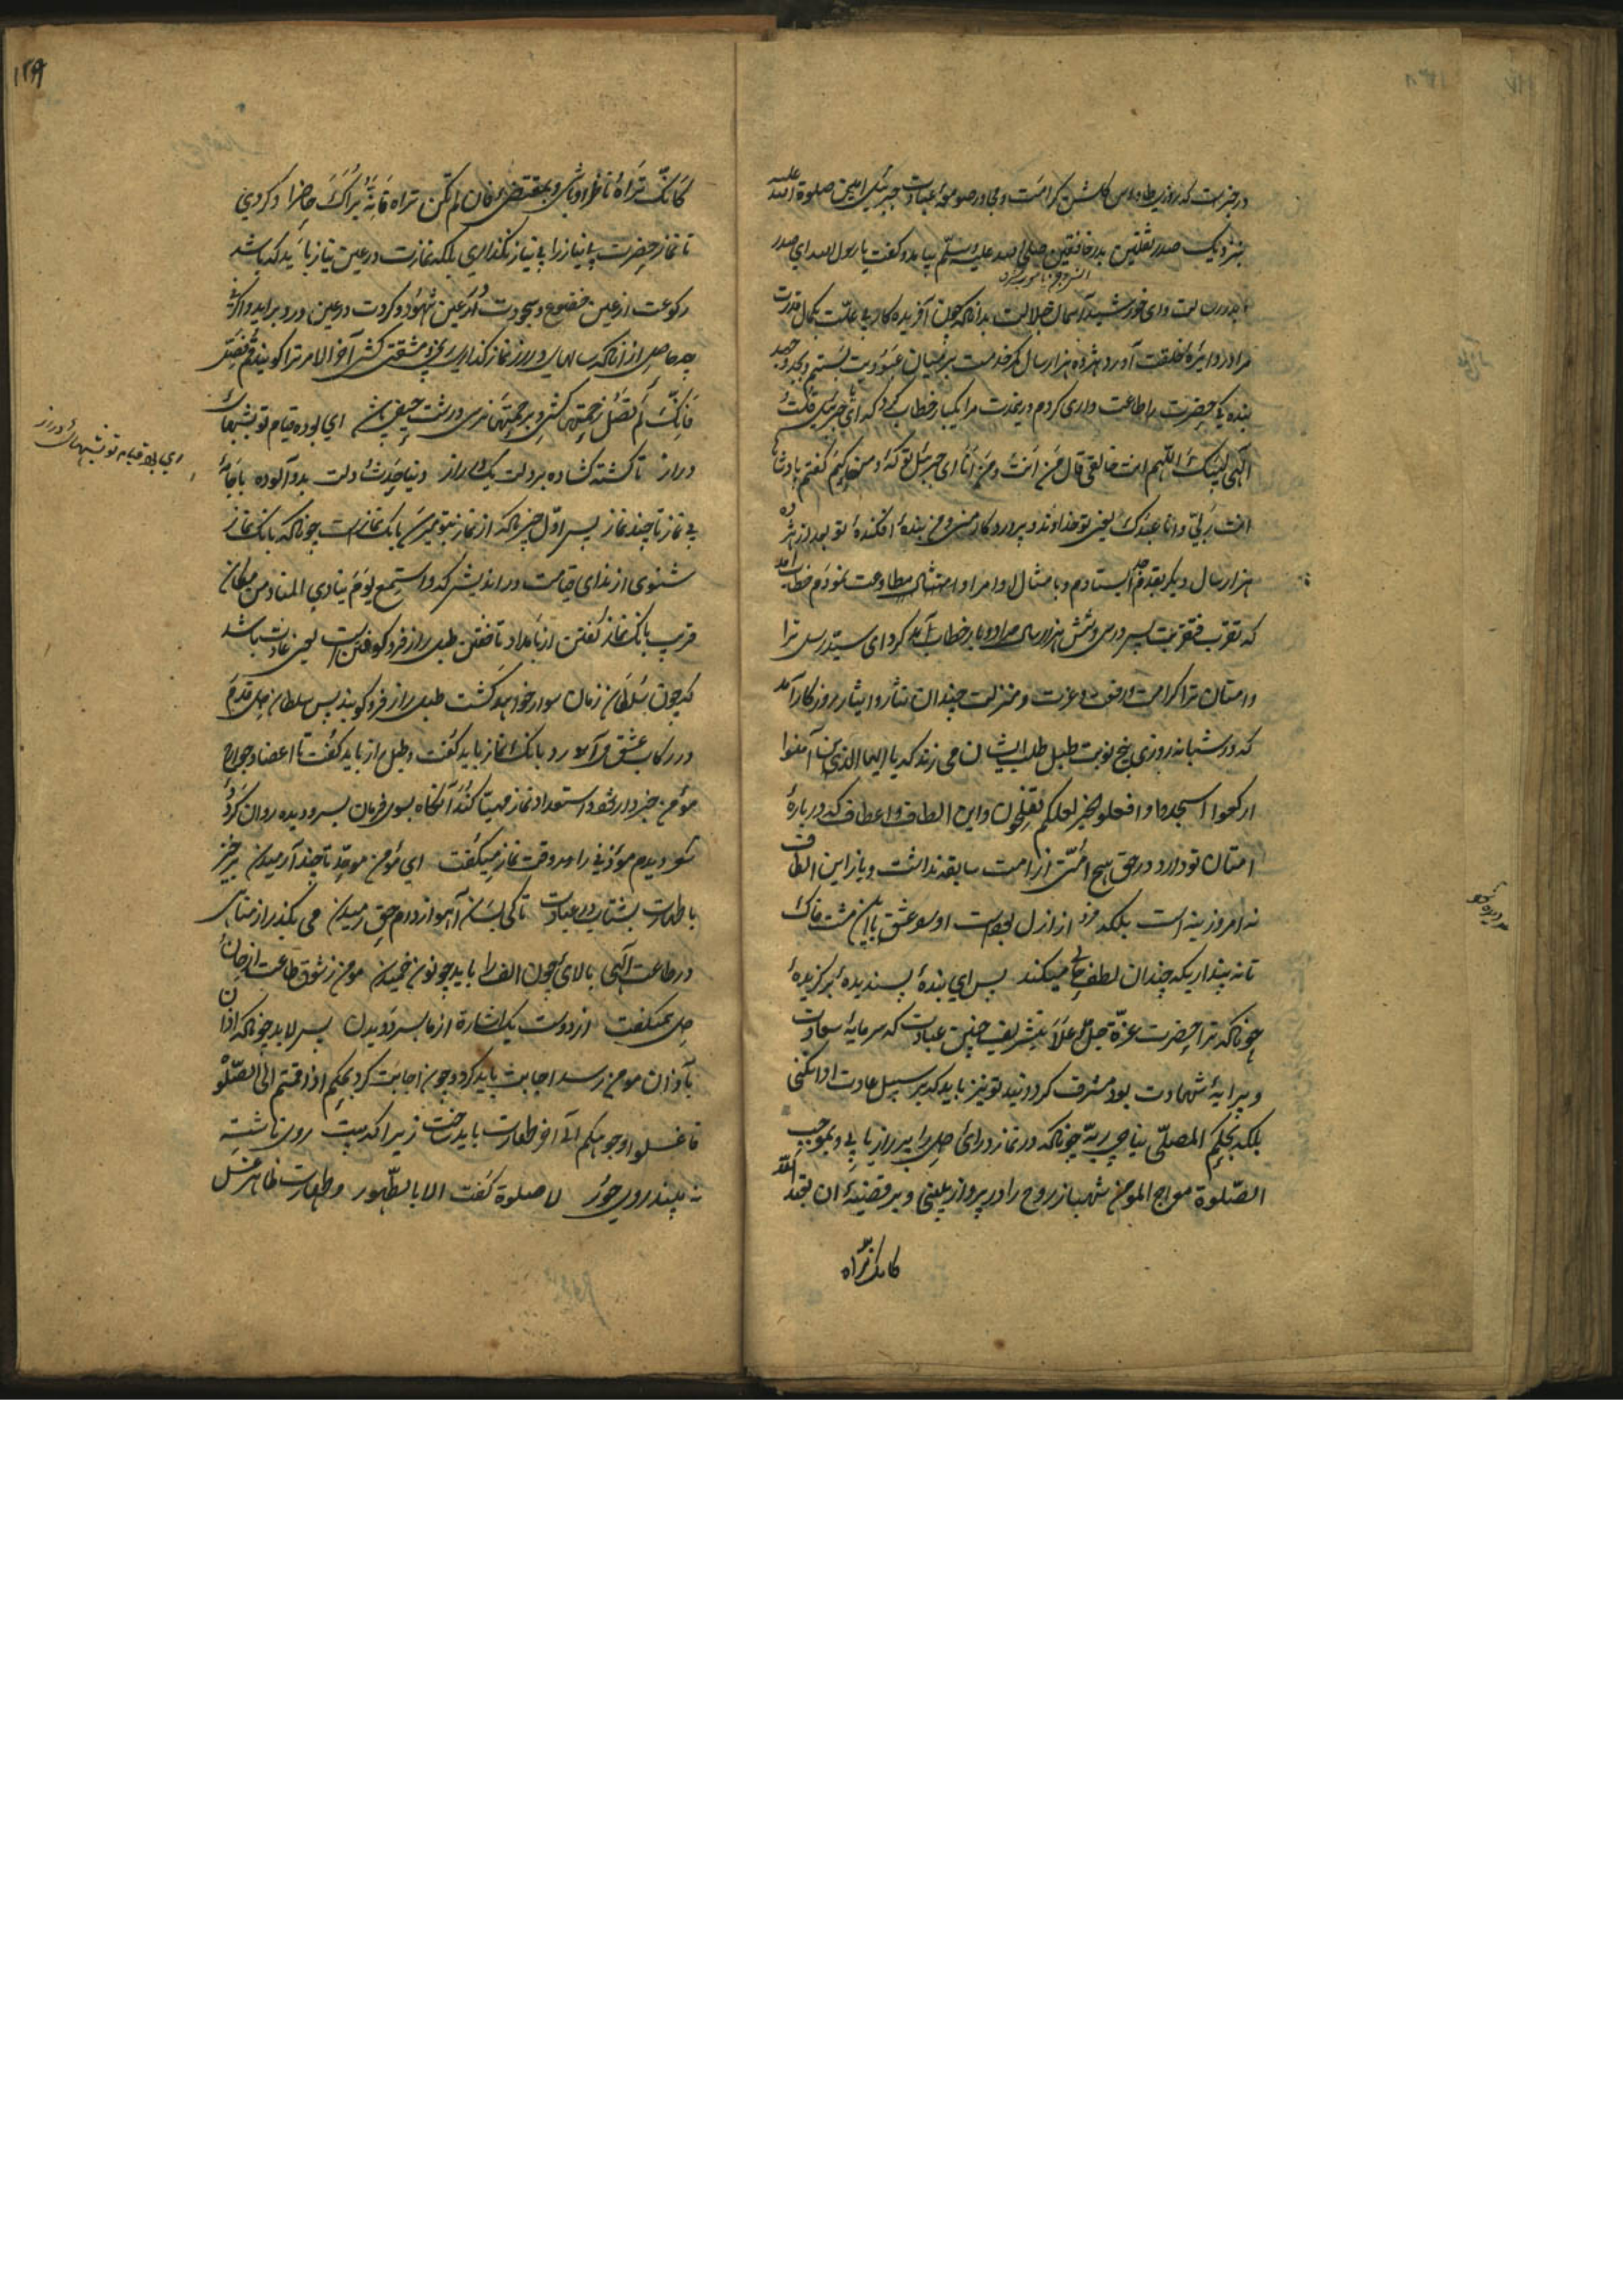 در خبرست که روزی طاوس گلشن کرامت و مجاور صومعهٔ عبادت جبرئیل امین صلوة الله علیه
بنزدیک صدر ثقلین بدر خافقین صلی الله علیه وسلم بیامد و گفت یا رسول الله ای صدر
و ای خورشید آسمان جلالت بدانکه چون آفریده کار بی علت بکمال قدرت
مرا در دایرهٔ خلقت آورد هژده هزار سال کمر خدمت بر میان عبودیت بستم و بجد و جهد
بنده یک حضرت را طاعت داری کردم درین مدت مرا یکبار خطاب کرد که ای جبرئیل قلت
الهی لبیک اللهم انت خالقی قال من انت و من انا ای جبرئیل تو که و من کیم گفتم بادشاها
انت ربی و انا عبدک یعنی تو خداوند و پروردگار منی و من بندهٔ افکندهٔ تو بعد از هژده
هزار سال دیگر بقدم ایستادم و بامثال اوامر او امتثال مطاوعت نمودم خطاب آمد
که تقرب فتقربت پس در سی و شش هزار سال مرا دو بار خطاب آمد کرد ای سید رسل ترا
و امتان ترا کرامت و رفعت و عزت و منزلت چندان نثار و ایثار روزگار آمد
که در شبانه روزی پنج نوبت طبل طلب ایشان می زند که یا ایها الذین آمنوا
ارکعوا اسجدوا وافعلوا الخیر لعلکم تفلحون و این الطاف و اعطاف که دربارهٔ
امتان تو دارد در حق هیچ امتی از امت سابقه نداشت و باز این الطاف
نه امروزینه است بلکه فرد از ازل بودست او سو عشق با این مشت خاک
تا نه پنداریکه چندان لطف حالی میکند پس ای بندهٔ پسندیده برگزیدهٔ
چونانکه ترا حضرت عزة جل و علا بتشریف چنین عبادت که سرمایهٔ سعادت
و پیرایهٔ شهادت بود مشرف گردانید تو نیز باید که بر سبیل عادت ادا نکنی
بلکه بحکم المصلی یناجی ربه چونانکه در نماز درائ دل را بر راز یابی و بموجب
الصلوة معراج المومن شهباز روح را در پرواز بینی و بر قضیهٔ ان تعبد الله
کانک تراه
۱۲۹
کانک تراه ناظر او باشی و بمقتضی فان لم تکن تراه فانه یراک حاضر او گردی
تا نماز حضرت بی نیاز را بی نیاز نگذاری بلکه نمازت در عین نیاز باید که باشد
رکوعت از عین خضوع و سجودت از عین شهود و کردت در عین درد برآید و اگرنه
چه حاصل از آنکه سالهای دراز نماز گذاری و رنج و مشقتی کشی آخر الامر ترا گویند قم فصل
فانک لم تصل زحمتها کشی و برحمتها نرسی درشت حیفی باشد ای بوده قیام تو بشبهای
دراز ناگشته گشاده بر دلت یک در راز دنیا حدث و دلت بدو آلوده با جامهٔ
بی نماز تا چند نماز پس اول چیزیکه از نماز بتو میرسد بانک نمازست چونانکه بانک نماز
شنوی از ندای قیامت در اندیش که واستمع یوم یناد المناد من مکان
قریب بانک نماز گفتن از بامداد تا خفتن طبل راز فرو کوفتن است یعنی عادت باشد
که چون سلطان زمان سوار خواهد گشت طبل راز فرو کوبند پس سلطان دل قدم
در رکاب عشق درآورد بانک نماز باید گفت و طبل راز باید گفت تا اعضا و جوارح
مؤمن خبردار شود و استعداد نماز مهیا کند آنگاه بسوی فرمان بسر و دیده روان گردد
شعر دیدم مؤذنی را در وقت نماز میگفت ای مؤمن موحد تا چند آرمیدن برخیز
با طهارت بشتاب در عبادت تا کی بسان آهو از دام حق رمیدن می بگذر از مناهی
در طاعت الهی بالای چون الف را باید چو نون خمیدن مومن ز شوق طاعت از جان
دل بمیگفت از دوست یک اشارة از ما بسر دویدن پس لابد چونانکه اذان
بآذان مومن رسد اجابت باید کرد و چون اجابت کرد بحکم اذا قمتم الی الصلوة
فاغسلوا وجوهکم الی آخر طهارت باید ساخت زیراکه بیت روی ناشسته
نه بیند روی حور لا صلوة گفت الا بالطهور و طهارت ظاهر غسل
ای بوده قیام تو بشبهای دراز